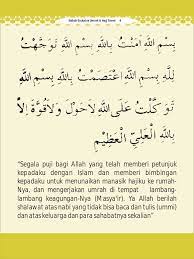 & Haji 4
بِسْمِ اللهِ أَمَنْتُ بِاللهِ بِسْمِ اللهِ تَوَجَّهْتُ
بِسْمِ اللهِ اعْتَصَمْتُ بِاللهِ بِسْمِ اللهِ
تَوَكَّلْتُ عَلَى اللهِ لَاحَوْلَ وَلَاقُوَّةَ إِلَّا
بِاللهِ الْعَلِيِّ الْعَظِيْمِ
“Segala puji bagi Allah yang telah memberi petunjuk
kepadaku dengan Islam dan memberi bimbingan
kepadaku untuk menunaikan manasik hajiku ke rumah-
Nya, dan mengerjakan umrah di tempat lambang-
lambang keagungan-Nya (Masya'ir). Ya Allah berilah
shalawat atas nabi yang tidak bisa baca dan tulis (ummi)
dan atas keluarga dan para sahabatnya sekalian”